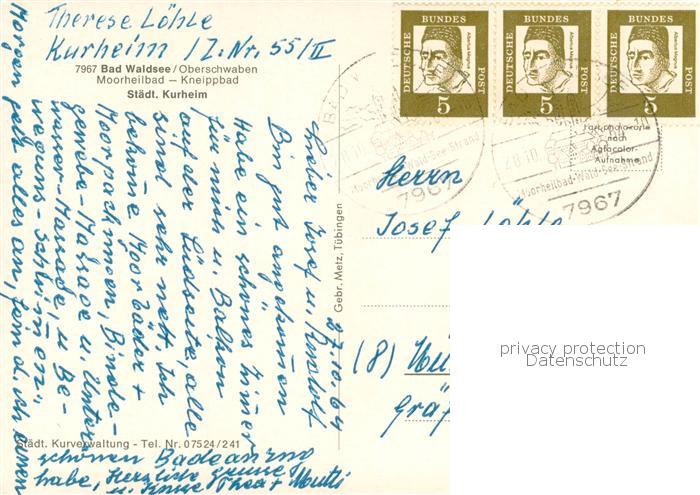 Therese Löhle
Kurheim / Z: Nr. 55/II
7967 Bad Waldsee / Oberschwaben
Moorheilbad — Kneippbad
Städt. Kurheim
27.10.64
Lieber Josef u. Rudolf
Bin gut angekommen
Habe ein schönes Zimmer
für mich u. Balkon
auf der Südseite, alle
sind sehr nett. Ich
bekomme Moorbäder +
Moorpackungen, Binde-
gewebe-Massage u. Unterw
wasser-Massage, u. Be-
wegungs-schwimmen".
Morgen geht alles an, fein d. ich einen
schönen Badeanzug
habe, Herzliche Grüsse
u. Küsse Thea + Mutti
Städt. Kurverwaltung - Tel. Nr. 07524/241
Gebr. Metz, Tübingen
DEUTSCHE BUNDES POST
Albertus Magnus
5
DEUTSCHE BUNDES POST
Albertus Magnus
5
DEUTSCHE BUNDES POST
Albertus Magnus
5
BAD
Moorheilbad-Wald-See-Strand
7967
28.10
Moorheilbad-Wald-See-Strand
7967
Farbphotokarte
nach
Agfacolor-
Aufnahme
Herrn
Josef Löhle
(8)
privacy protection
Datenschutz